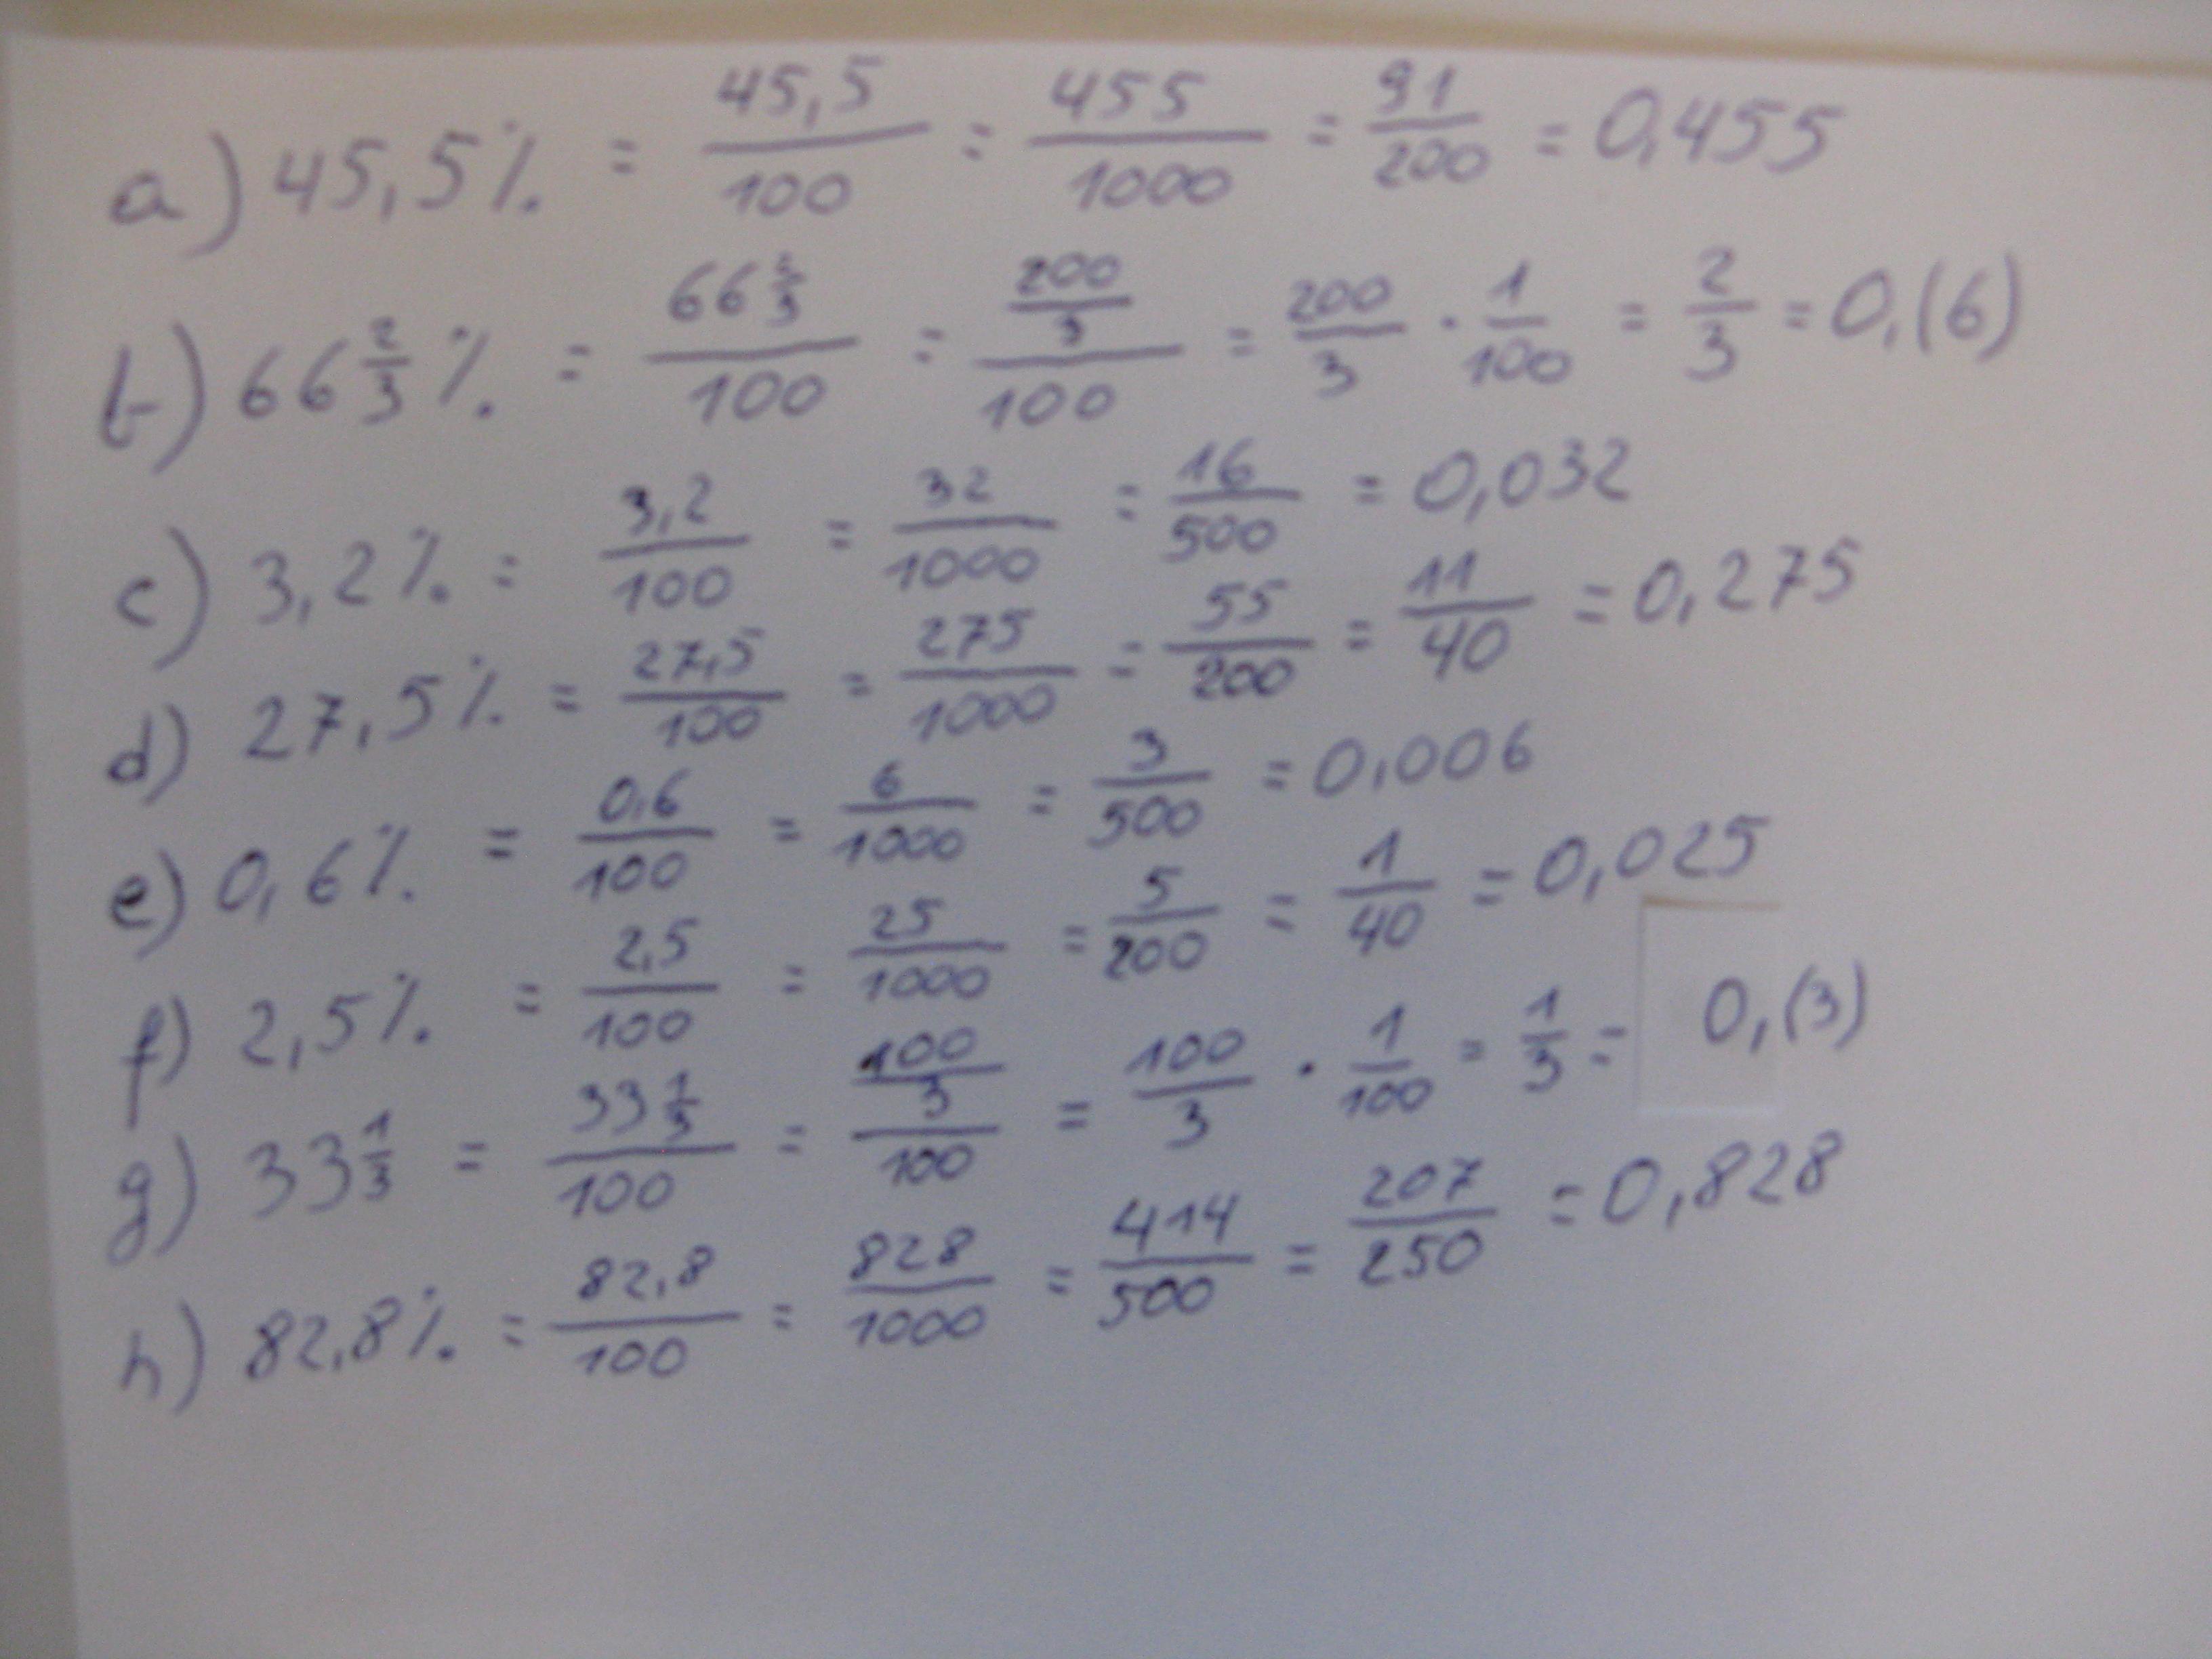 a) 45,5% = 45,5/100 = 455/1000 = 91/200 = 0,455
b) 66 2/3 % = 66 2/3 / 100 = 200/3 / 100 = 200/3 · 1/100 = 2/3 = 0,(6)
c) 3,2% = 3,2/100 = 32/1000 = 16/500 = 0,032
d) 27,5% = 27,5/100 = 275/1000 = 55/200 = 11/40 = 0,275
e) 0,6% = 0,6/100 = 6/1000 = 3/500 = 0,006
f) 2,5% = 2,5/100 = 25/1000 = 5/200 = 1/40 = 0,025
g) 33 1/3 = 33 1/3 / 100 = 100/3 / 100 = 100/3 · 1/100 = 1/3 = 0,(3)
h) 82,8% = 82,8/100 = 828/1000 = 414/500 = 207/250 = 0,828